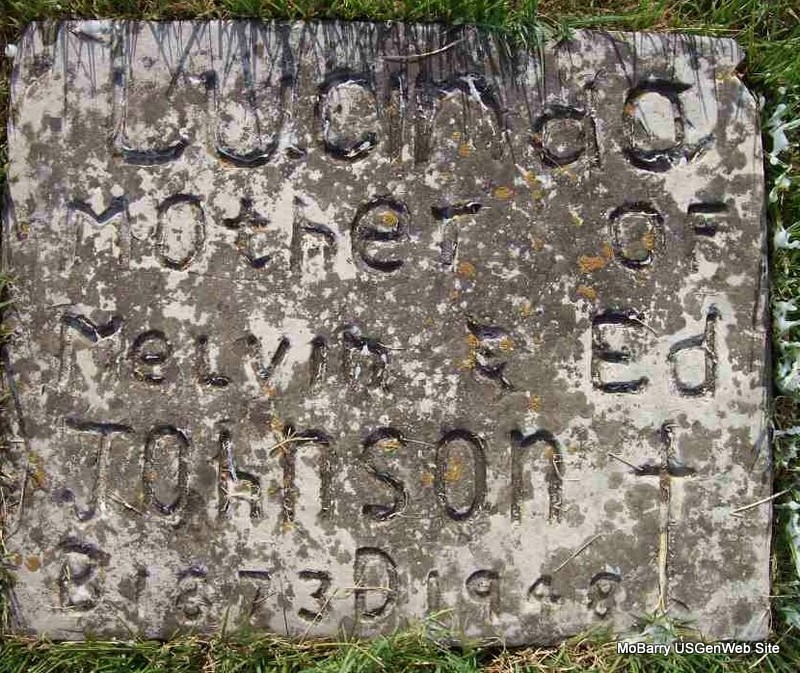 Lucinda
Mother OF
Melvin & Ed
JOhnson
B 1873 D 1948
MoBarry USGenWeb Site